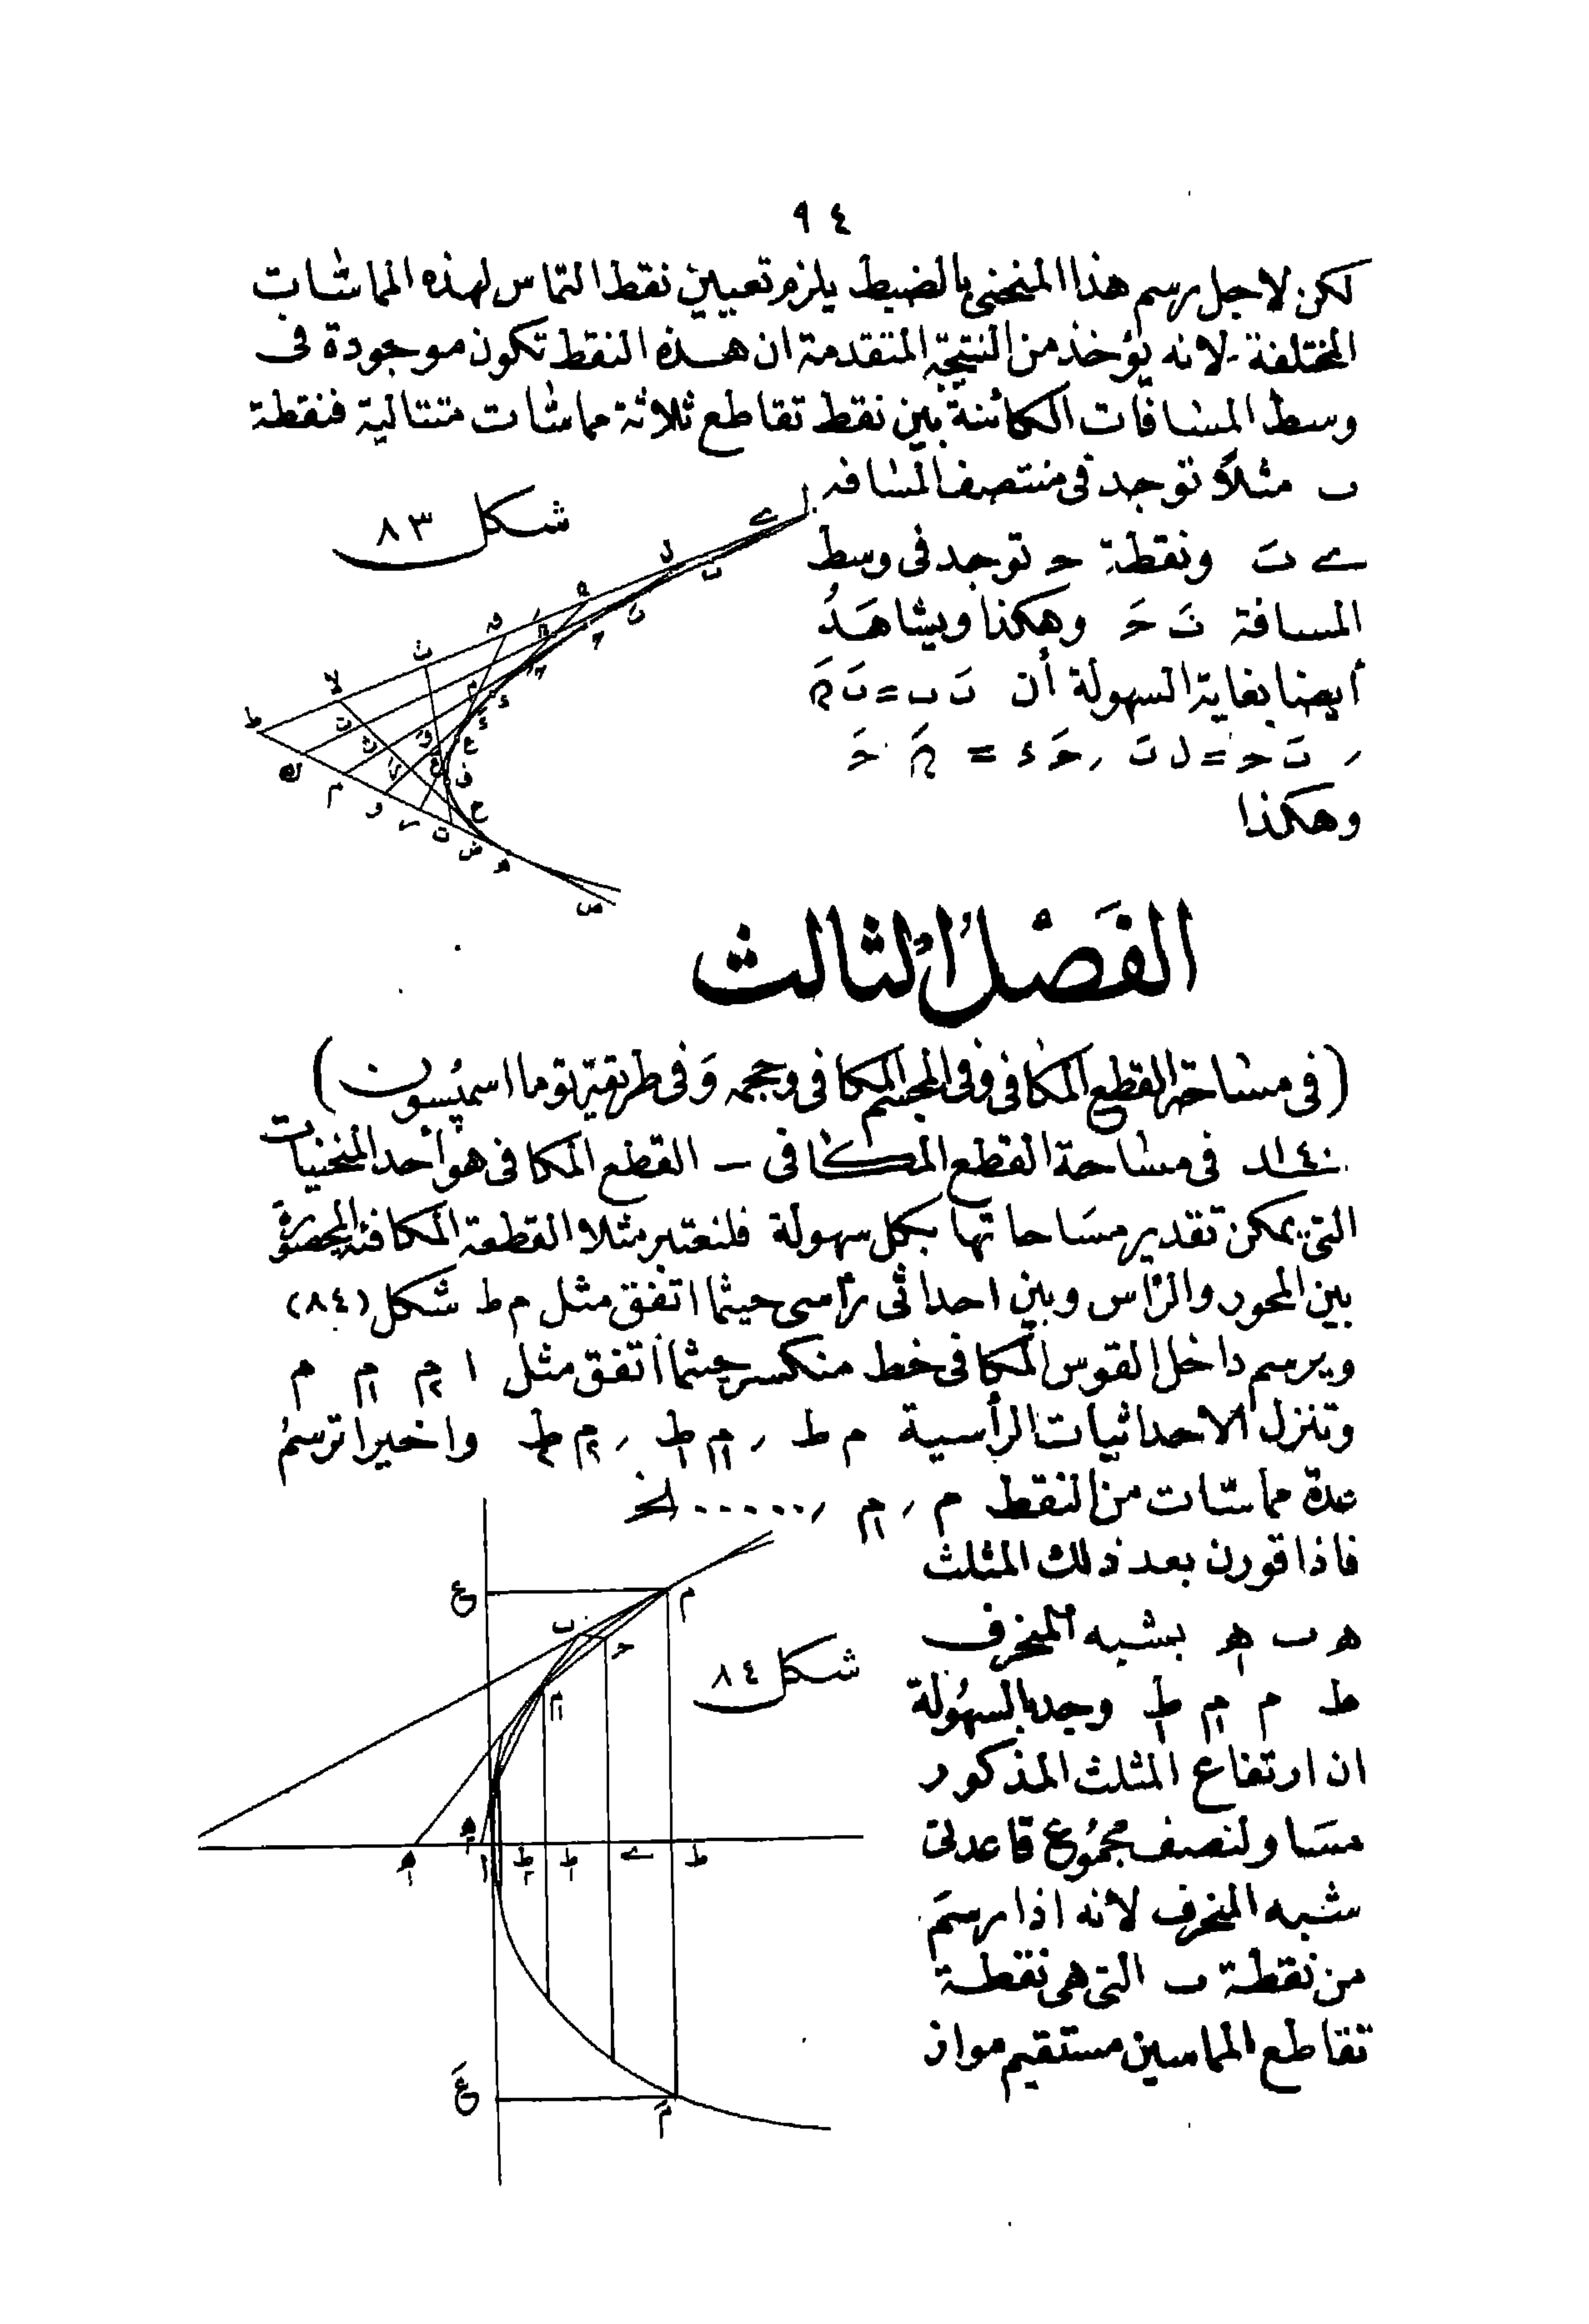 ٩٤
لكن لاجل رسم هذا المنحنى بالضبط يلزم تعيين نقط التماس لهذه المماسات
المختلفة - لانه يؤخذ من النتيجة المتقدمة ان هذه النقط تكون موجودة فى
وسط المسافات الكائنة بين نقط تقاطع ثلاثة مماسات متتالية فنقطة
ب مثلاً توجد فى منتصف المسافه
شكل ٨٣
ونقطة ح توجد فى وسط
المسافة وهكذا ويشاهد
أيضا بغاية السهولة أن
وهكذا
الفَصْلُ الثالث
(فى مساحة القطع المكافى وفى المجسم المكافى وحجمه وَفى طريقة توما اسمپسون)
فى مساحة القطع المكافى – القطع المكافى هو أحد المنحنيات
التى يمكن تقدير مسَاحاتها بكل سهولة فلنعتبر مثلا القطعة المكافئة المحصورة
بين المحور والرأس وبين احداثى رأسى حيثما اتفق مثل م ط شكل (٨٤)
ويرسم داخل القوس المكافى خط منكسر حيثما أتفق مثل ا م٢ م١ م
وتنزل الاحداثيات الرأسية م ط , م١ ط١ , م٢ ط٢ واخيرا ترسمُ
عدة مماسات من النقط م , م١ , ...... الخ
فاذا قورن بعد ذلك المثلث
ه ب ه١ بشبه المنحرف
شكل ٨٤
ط م م١ ط١ وجد بالسهُولة
ان ارتفاع المثلث المذكور
مسَاو لنصف مجمُوع قاعدتى
شبه المنحرف لانه اذا رسمَ
من نقطة ب التى هى نقطة
تقاطع المماسين مستقيم مواز